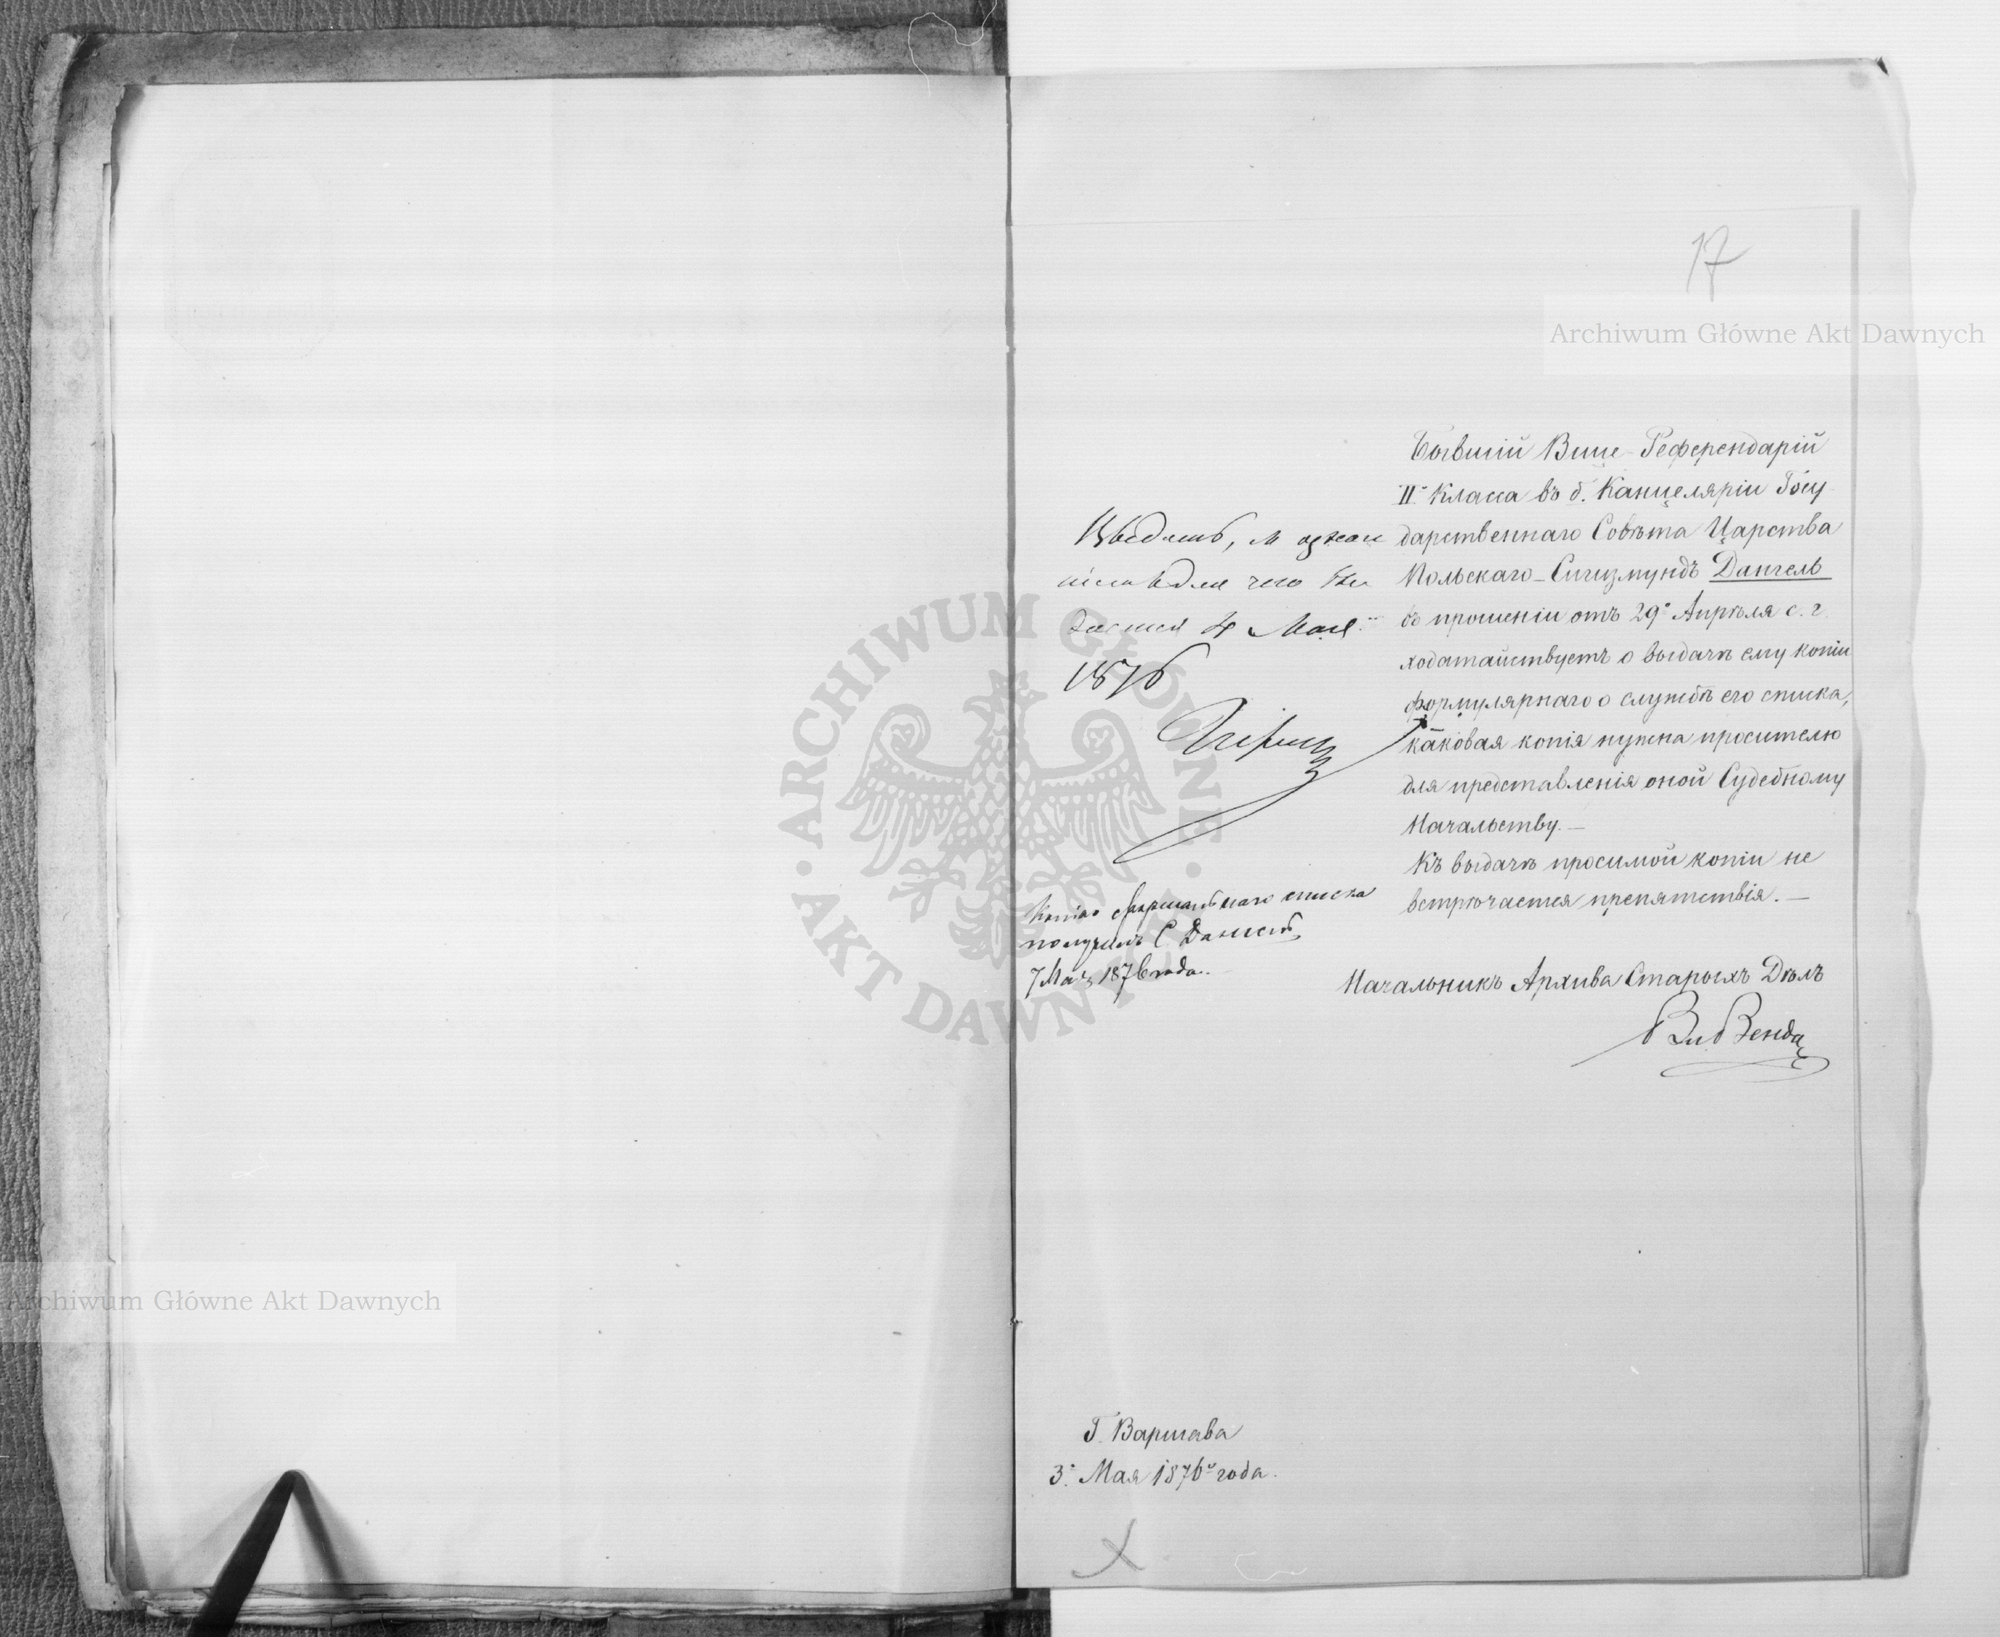 17
Archiwum Główne Akt Dawnych
Бывшій Вице-Референдарій
II. класса въ б. Канцеляріи Госу
дарственнаго Совѣта Царства
Польскаго - Сигизмундъ Дангель
въ прошеніи отъ 29. Апрѣля с. г.
ходатайствуетъ о выдачѣ ему копіи
формулярнаго о службѣ его списка,
каковая копія нужна просителю
для представленія оной Судебному
Начальству. —
Къ выдачѣ просимой копіи не
встрѣчается препятствія. —
Начальникъ Архива Старыхъ Дѣлъ
Вл Венда
4 Мая
1876
Копію формальнаго списка
получилъ С. Дангель
7 Мая 1876 года.
ARCHIWUM GŁÓWNE · AKT DAWNYCH ·
Archiwum Główne Akt Dawnych
Г. Варшава
3. Мая 1876 года.